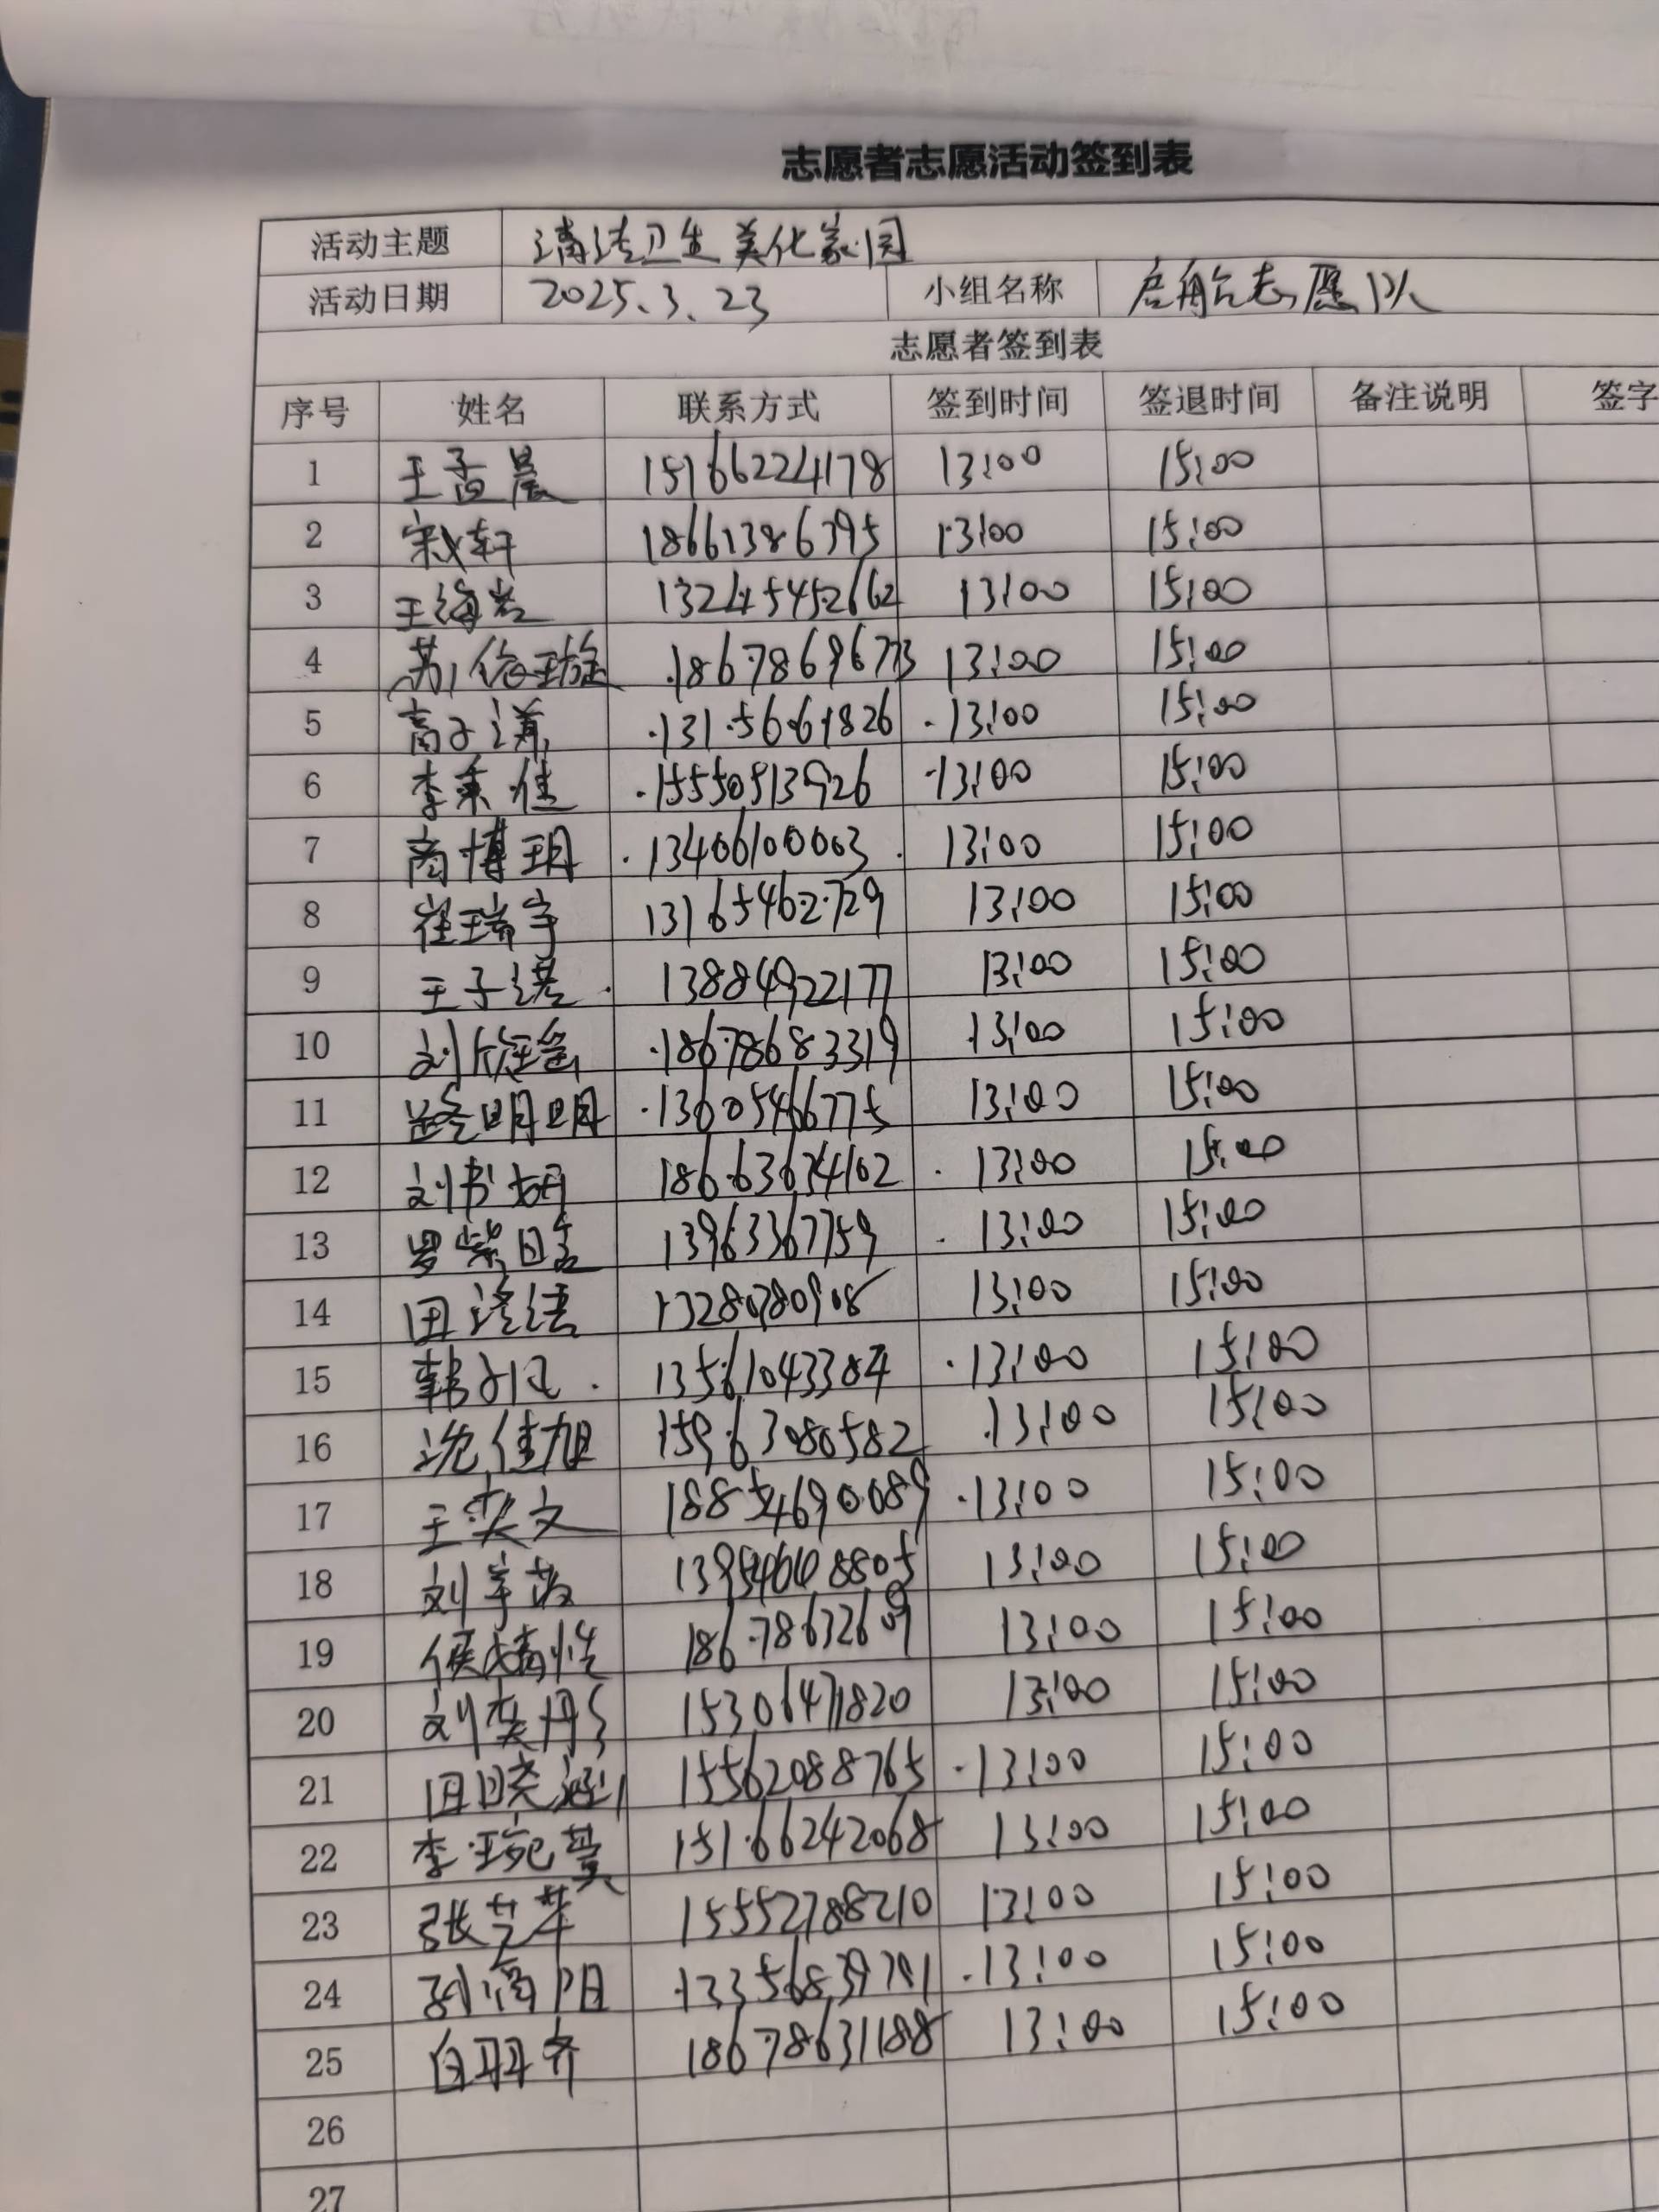 志愿者志愿活动签到表
活动主题 清洁卫生美化家园
活动日期 2025.3.23 小组名称 启航志愿队
志愿者签到表
序号 姓名 联系方式 签到时间 签退时间 备注说明 签字
1 王孟晨 15166224178 13:00 15:00
2 宋轩 18661386395 13:00 15:00
3 王海岩 13245452662 13:00 15:00
4 13:00 15:00
5 高子谦 13156661826 13:00 15:00
6 李秉佳 15550513926 13:00 15:00
7 商博玥 13406100003 13:00 15:00
8 崔瑞宇 13165462729 13:00 15:00
9 王子 13884922177 13:00 15:00
10 刘 18678683319 13:00 15:00
11 路明明 13605466775 13:00 15:00
12 刘书 18663634102 13:00 15:00
13 罗紫 13963367759 13:00 15:00
14 田 13280780908 13:00 15:00
15 韩 13561043384 13:00 15:00
16 沈佳旭 15963080582 13:00 15:00
17 王奕文 18854690089 13:00 15:00
18 刘宇 13:00 15:00
19 侯婧怡 18678632609 13:00 15:00
20 刘奕彤 15306471820 13:00 15:00
21 田晓涵 15562088765 13:00 15:00
22 李琬 15166242068 13:00 15:00
23 张艺苹 15552788210 13:00 15:00
24 13:00 15:00
25 白羽齐 18678631188 13:00 15:00
26
27